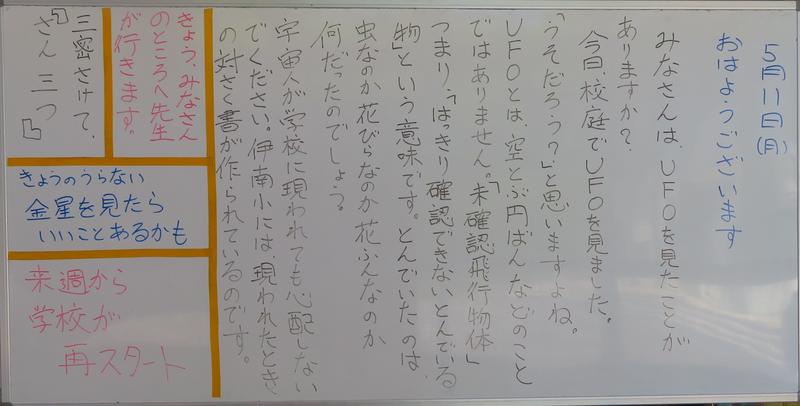 5月11日(月)
おはようございます
みなさんは、UFOを見たことが
ありますか?
今日、校庭でUFOを見ました。
「うそだろう?」と思いますよね。
UFOとは、空とぶ円ばんなどのこと
ではありません。「未確認飛行物体」
つまり、「はっきり確認できないとんでいる
物」という意味です。とんでいたのは、
虫なのか花びらなのか花ふんなのか
何だったのでしょう。
宇宙人が学校に現われても心配しない
でください。伊南小には、現われたとき、
の対さく書が作られているのです。
きょう、みなさん
のところへ先生
が行きます。
三密さけて、
「さん三つ」
きょうのうらない
金星を見たら
いいことあるかも
来週から
学校が
再スタート